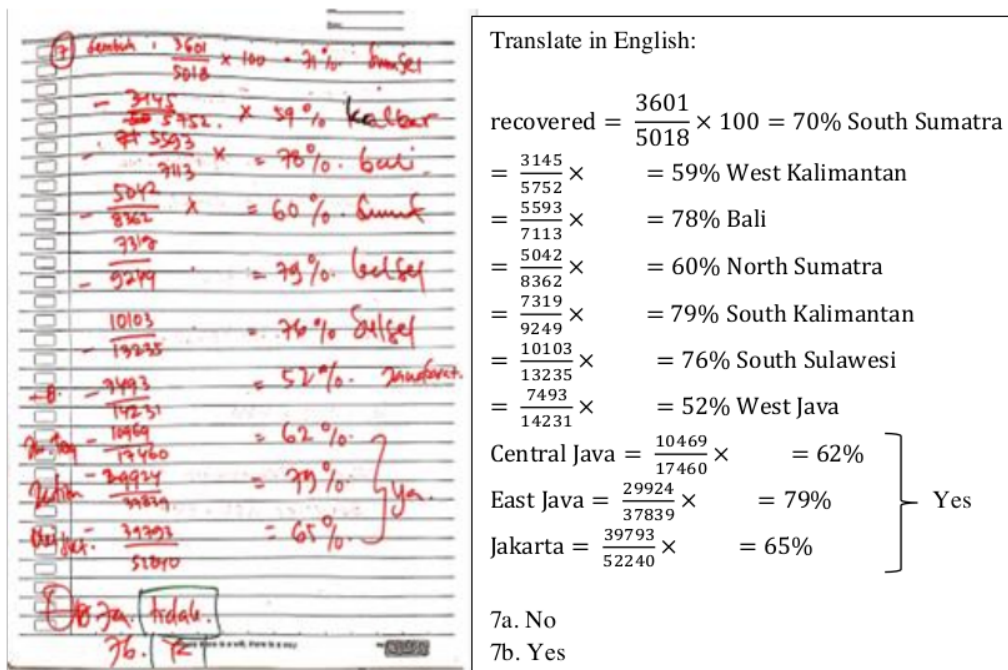 7 Sembuh : 3601/5018 × 100 = 71% Sumsel
- 3145/5752 × 59% kalbar
- 5593/7113 × = 78% . bali
- 5042/8362 × = 60% . Sumut
- 7319/9249 = 79% . kalsel
- 10103/13235 = 76% Sulsel
- 7493/14231 = 52% .
- 10469/17460 = 62% .
Jatim - 29924/37839 = 79% . ya .
- 39793/52240 = 65% .
7a . tidak .
7b . Ya
Translate in English:
recovered = 3601/5018 × 100 = 70% South Sumatra
= 3145/5752 × = 59% West Kalimantan
= 5593/7113 × = 78% Bali
= 5042/8362 × = 60% North Sumatra
= 7319/9249 × = 79% South Kalimantan
= 10103/13235 × = 76% South Sulawesi
= 7493/14231 × = 52% West Java
Central Java = 10469/17460 × = 62%
East Java = 29924/37839 × = 79% Yes
Jakarta = 39793/52240 × = 65%
7a. No
7b. Yes